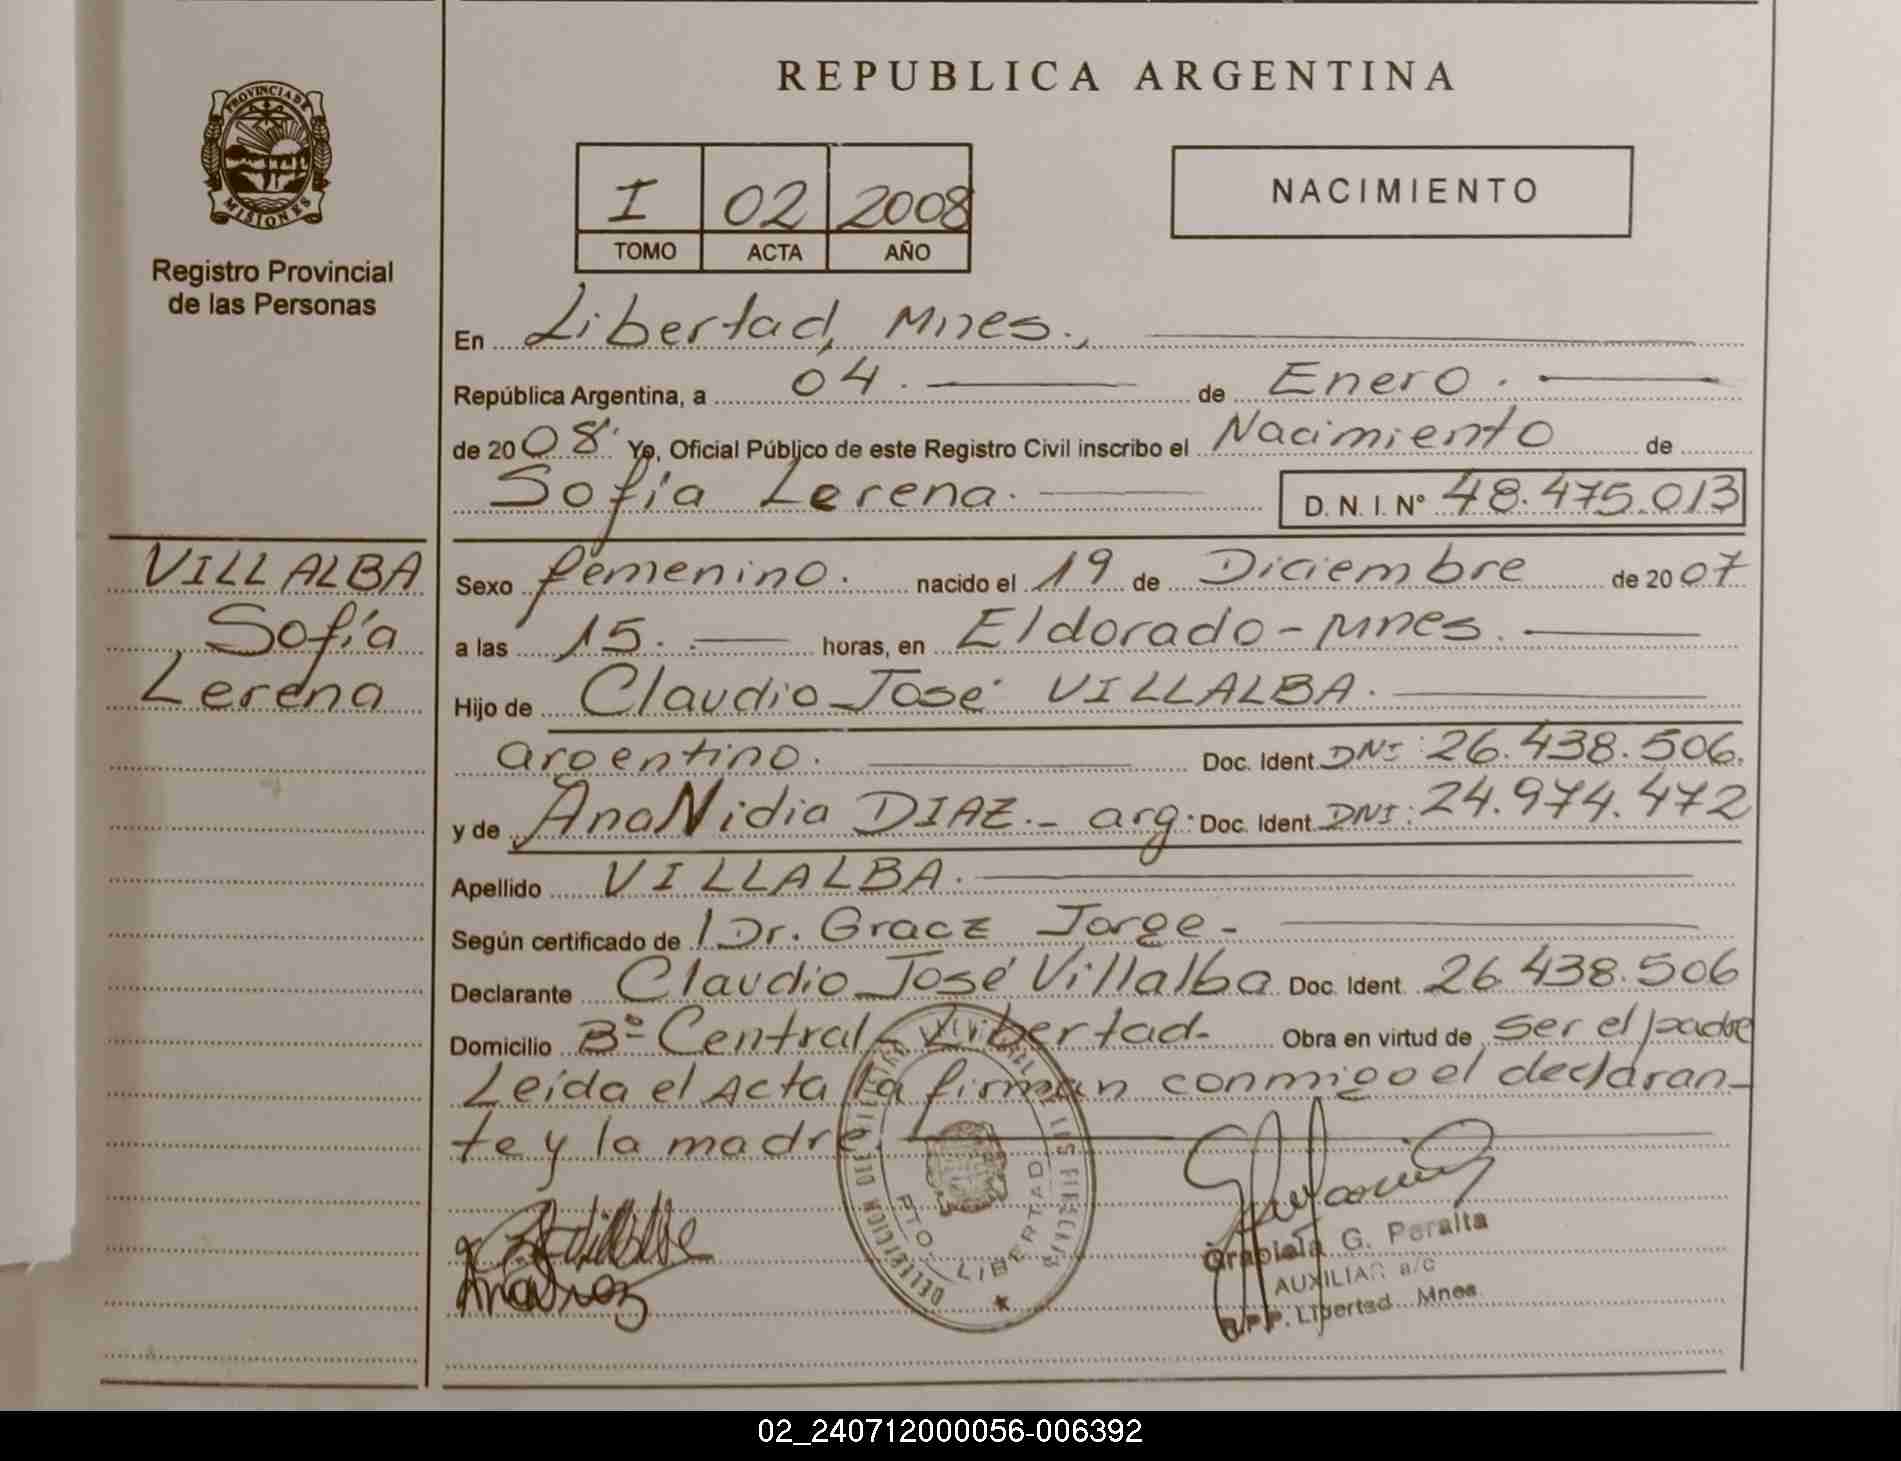 PROVINCIA DE
MISIONES
Registro Provincial
de las Personas
VILLALBA
Sofía
Lerena
REPUBLICA ARGENTINA
I 02 2008
TOMO ACTA AÑO
NACIMIENTO
En Libertad, Mnes.,
República Argentina, a 04. de Enero.
de 2008. Yo, Oficial Público de este Registro Civil inscribo el Nacimiento de
Sofía Lerena. D. N. I. Nº 48.475.013
Sexo femenino. nacido el 19 de Diciembre de 2007
a las 15. horas, en Eldorado - Mnes.
Hijo de Claudio José VILLALBA.
argentino. Doc. Ident. DNI: 26.438.506.
y de Ana Nidia DIAZ.- arg. Doc. Ident. DNI: 24.974.472
Apellido VILLALBA.
Según certificado de Dr. Gracz Jorge-
Declarante Claudio José Villalba Doc. Ident. 26.438.506
Domicilio Bº Central - Libertad- Obra en virtud de ser el padre
Leída el Acta la firman conmigo el declaran-
te y la madre.
PTO. LIBERTAD
Graciela G. Peralta
AUXILIAR a/c
R.P.P. Libertad Mnes
02_240712000056-006392